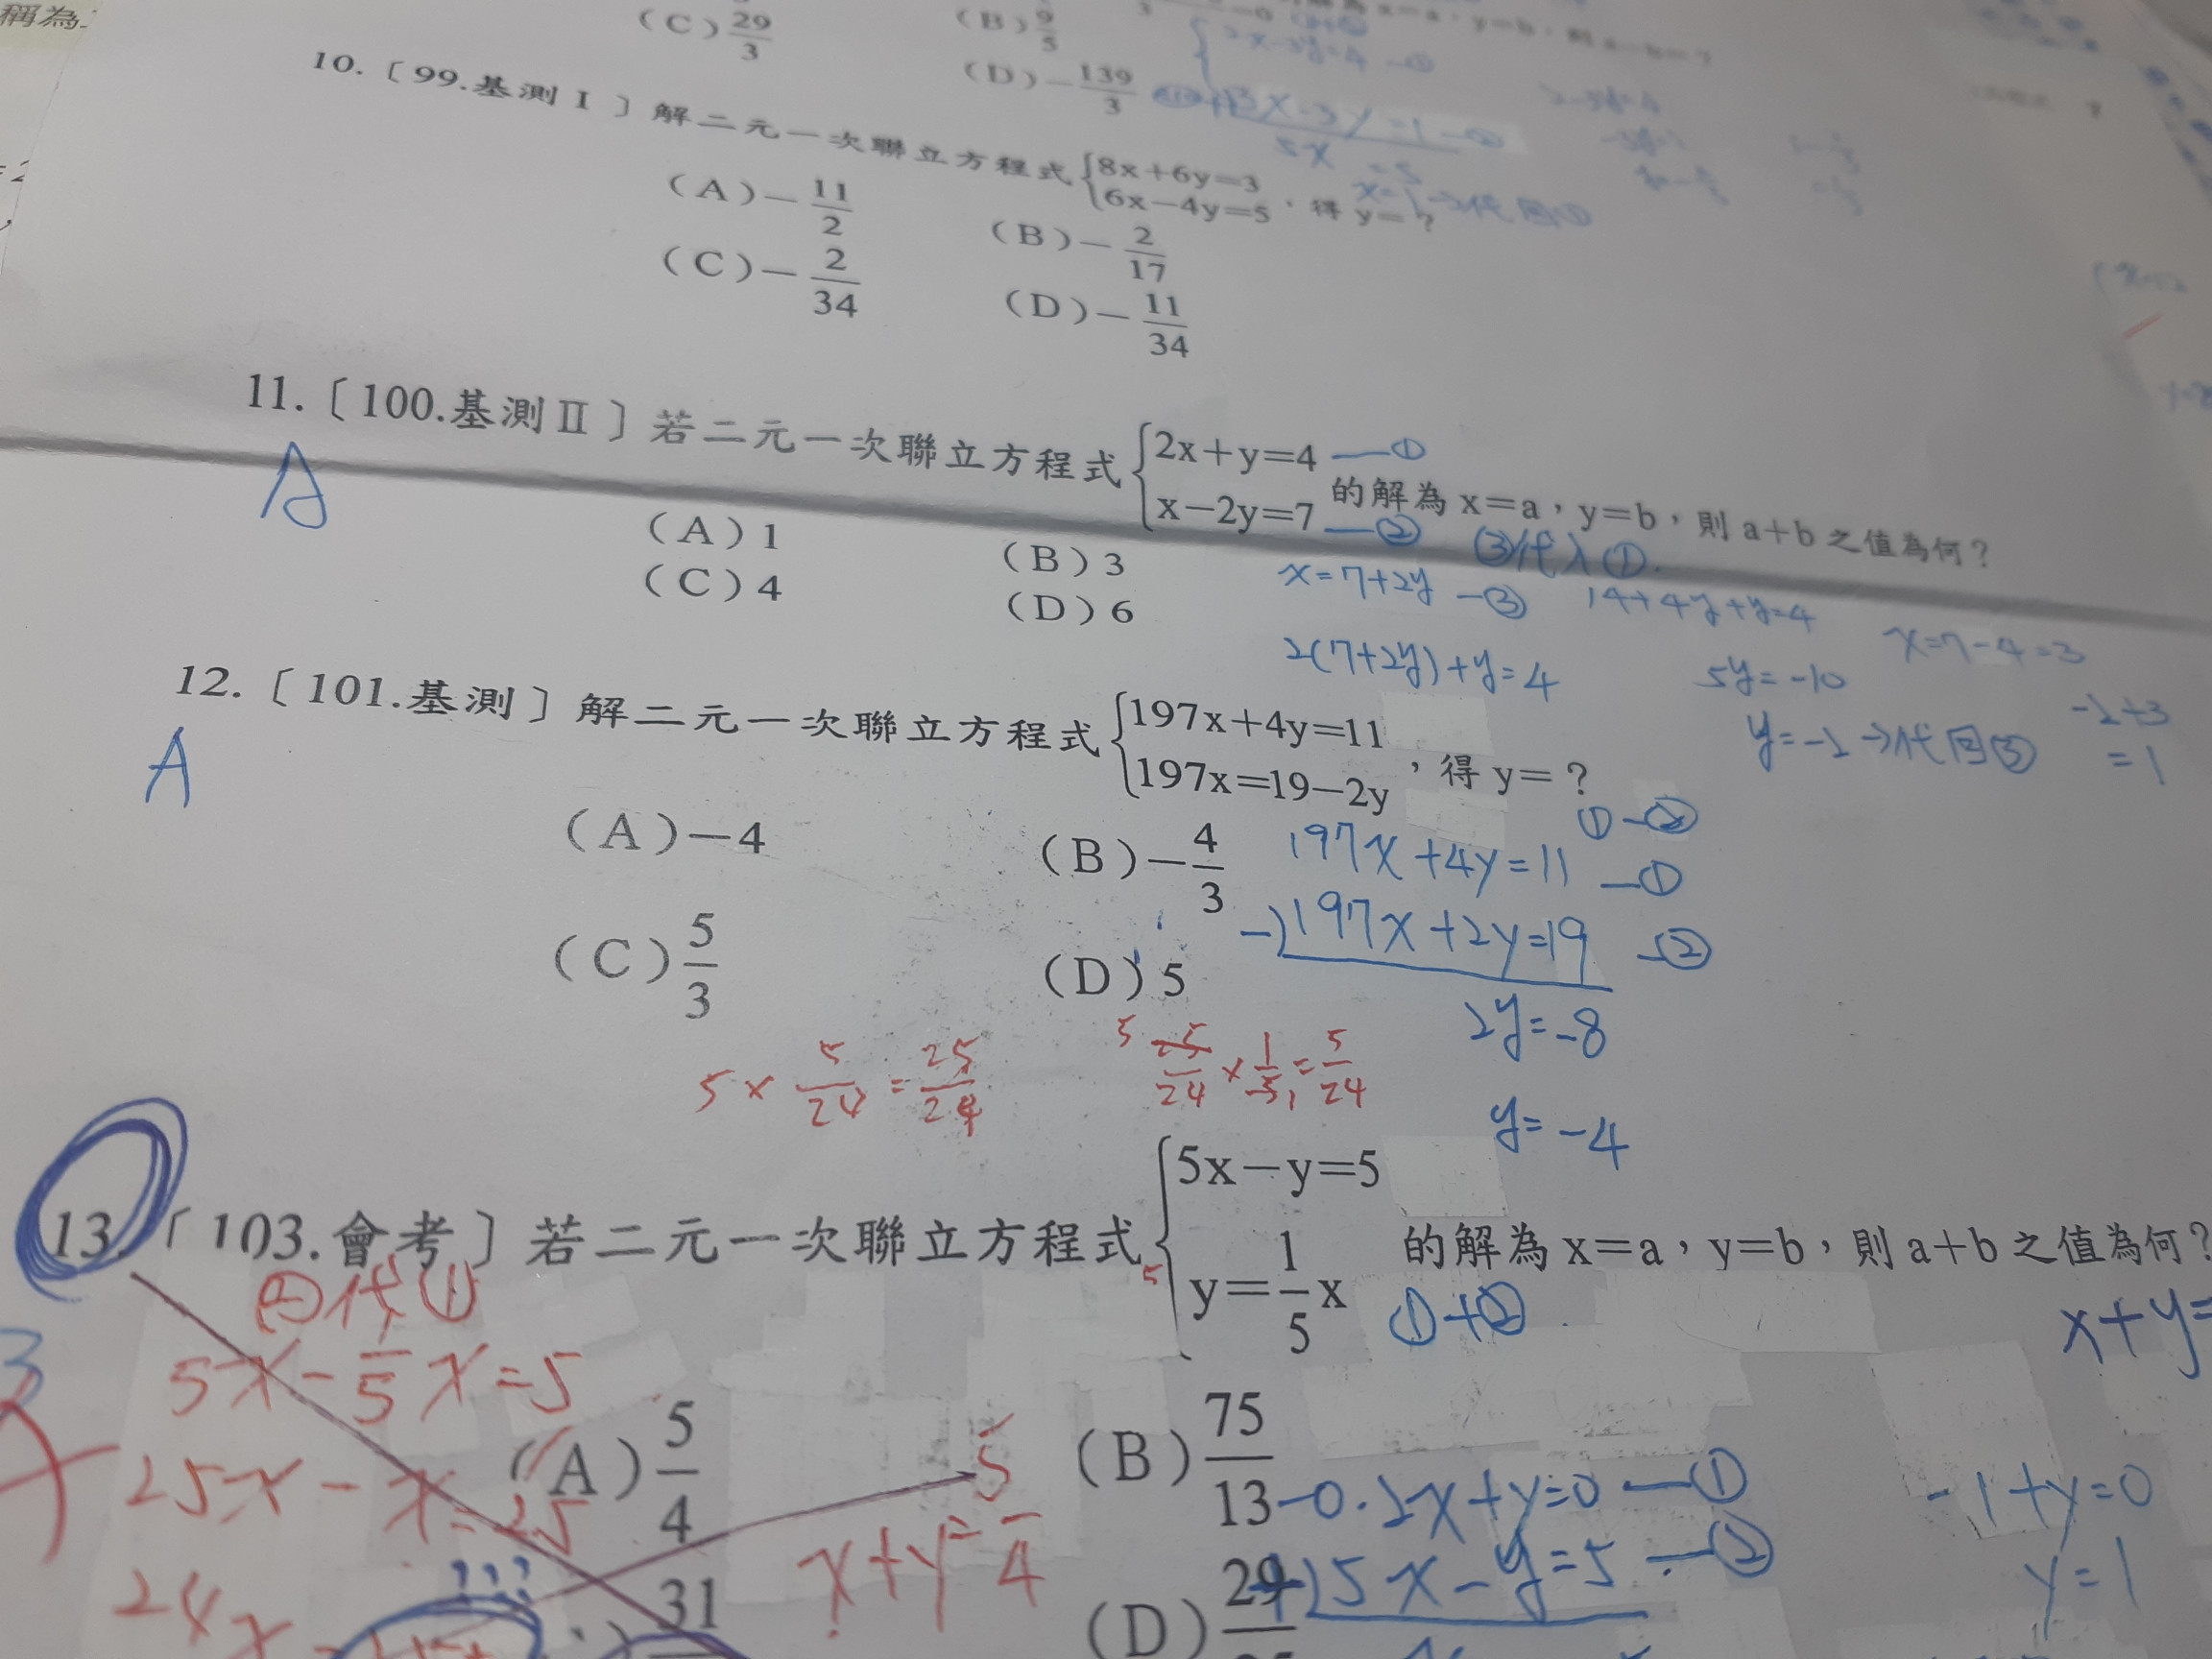 稱為
(C) 29/3
(B) 9/5
(D) -139/3
x=a，y=b，則a-b=?
2x-3y=4 —①
3x-3y=1 —②
5x =5
x=1 →代回①
10.〔99.基測Ⅰ〕解二元一次聯立方程式{8x+6y=3
6x-4y=5，得y=?
(A) -11/2
(B) -2/17
(C) -2/34
(D) -11/34
11.〔100.基測Ⅱ〕若二元一次聯立方程式{2x+y=4 —①
x-2y=7 —② 的解為x=a，y=b，則a+b之值為何?
A
(A) 1
(B) 3
(C) 4
(D) 6
③代入①.
x=7+2y —③
14+4y+y=4
2(7+2y)+y=4
5y=-10
x=7-4=3
y=-2→代回③
-2+3
=1
12.〔101.基測〕解二元一次聯立方程式{197x+4y=11
197x=19-2y，得y=?
A
(A) -4
(B) -4/3
(C) 5/3
(D) 5
①-②
197x+4y=11 —①
-) 197x+2y=19 —②
2y=-8
y=-4
5×5/24=25/24
5 25/24×1/5 1=5/24
13.〔103.會考〕若二元一次聯立方程式{5x-y=5
y=1/5x 的解為x=a，y=b，則a+b之值為何?
5
②代①
①+②
x+y=
5x-1/5x=5
25x-x=25
24x
(A) 5/4
(B) 75/13
31
(D) 29
x+y=5/4
-0.2x+y=0 —①
+) 5x-y=5 —②
-1+y=0
y=1
???
3